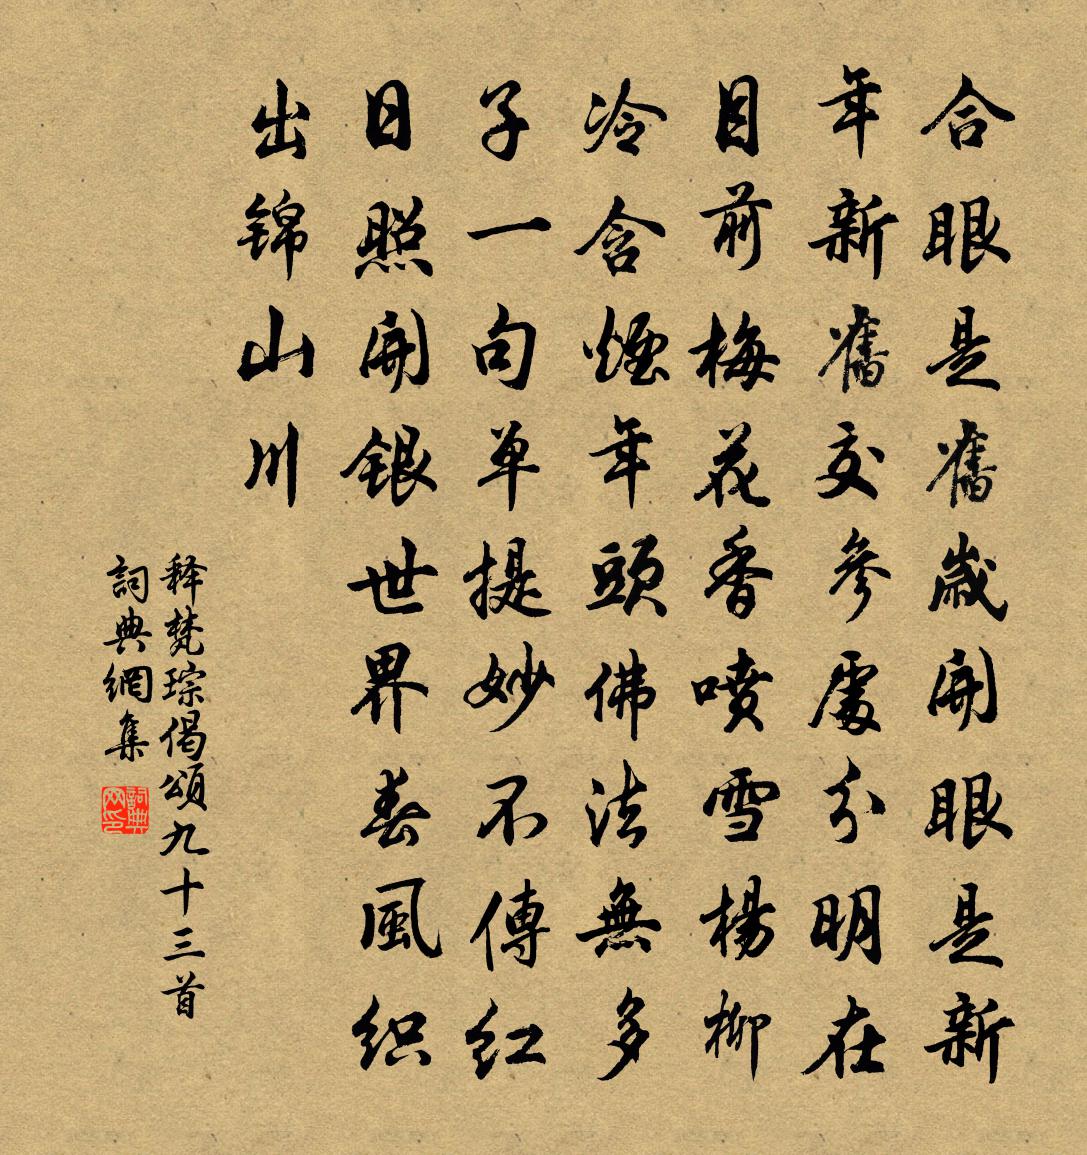 合眼是舊歲開眼是新
年新舊交參處分明在
目前梅花香噴雪楊柳
冷含煙年頭佛法無多
子一句單提妙不傳紅
日照開銀世界春風织
出锦山川
释梵琮偈頌九十三首
詞典網集
詞典网印